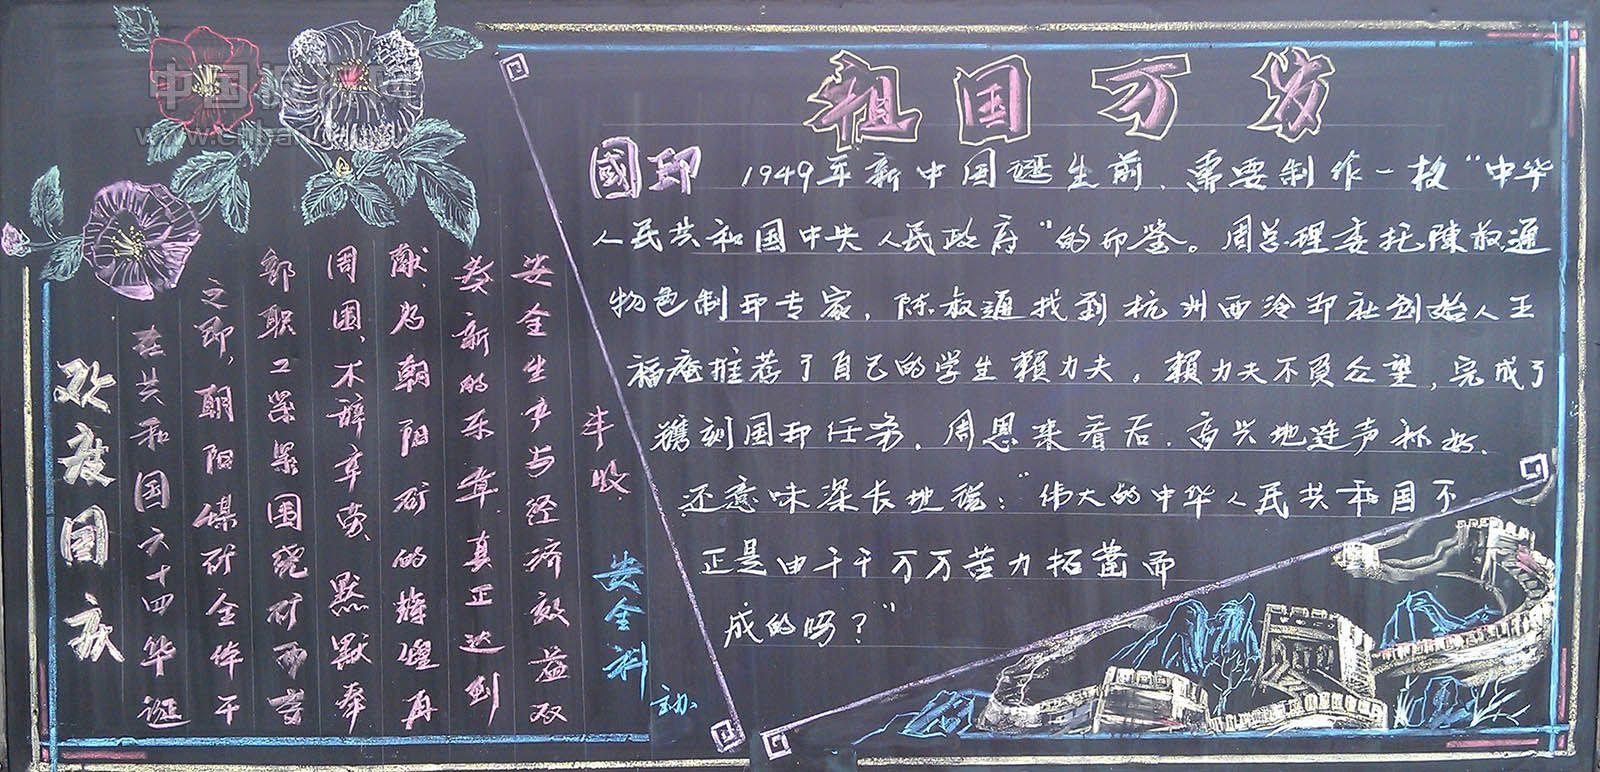 中国板报网
祖国万岁
國印 1949年新中国诞生前,需要制作一枚“中华
人民共和国中央人民政府”的印鉴。周总理委托陈叔通
物色制印专家,陈叔通找到杭州西冷印社创始人王
福庵推荐了自己的学生賴力夫。賴力夫不负众望,完成了
镌刻国印任务,周恩来看后,高兴地连声称好,
还意味深长地说:“伟大的中华人民共和国不
正是由千千万万苦力拓凿而
成的吗?”
欢度国庆
在共和国六十四华诞
之即,朝阳煤矿全体干
部职工紧紧围绕矿两
周围、不辞辛劳、默默奉
献、为朝阳矿的辉煌再
奏新的乐章,真正达到
安全生产与经济效益双
丰收
安全科 主办